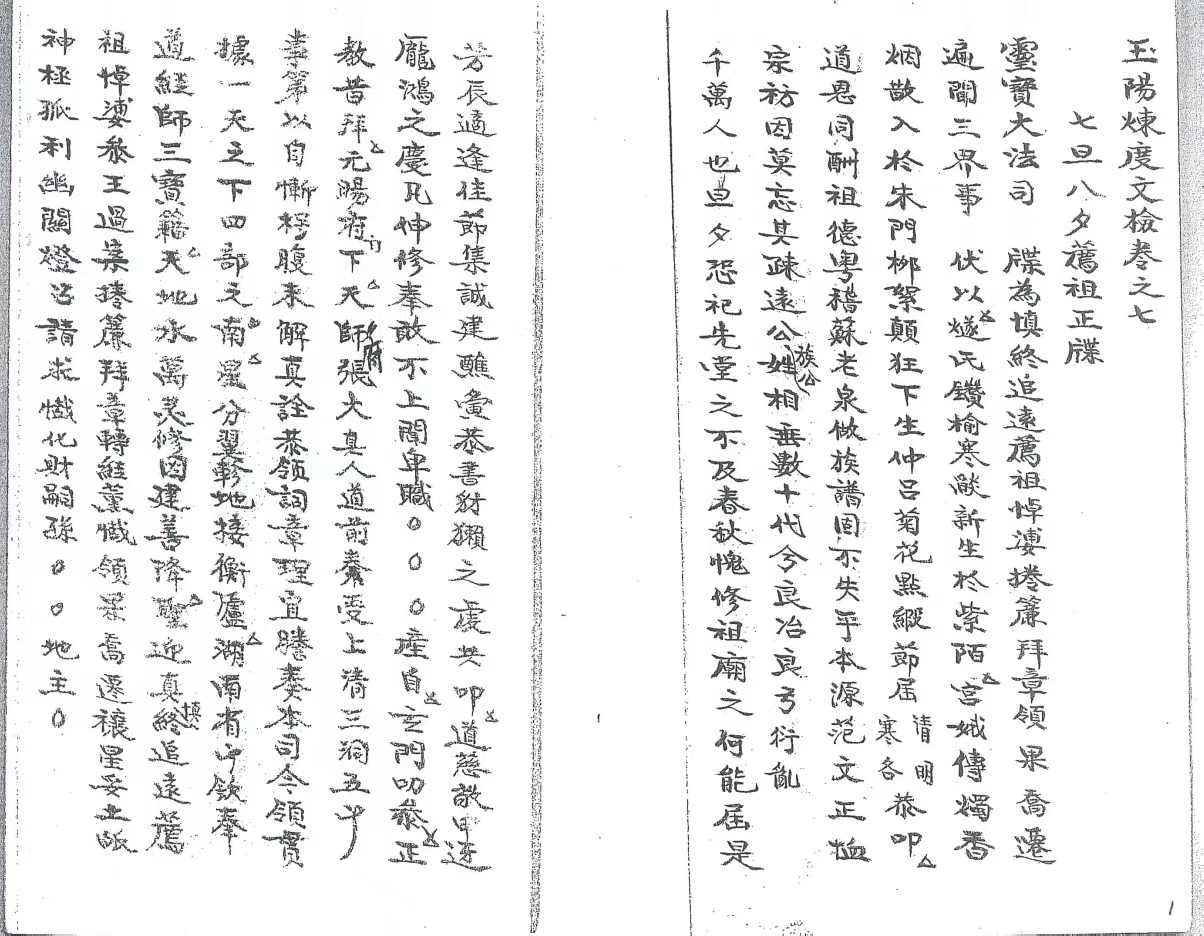 玉陽煉度文檢卷之七
七旦八夕薦祖正牒
靈寶大法司　牒為慎終追遠薦祖悼淒捲簾拜章領果喬遷
遍聞三界事　伏以燧氏鑽榆寒燄新生於紫陌宮娥傳燭香
烟散入於朱門柳絮顛狂下生仲呂菊花點綴節屆
清明
寒各
恭叩
道恩同酬祖德粵稽蘇老泉做族譜固不失乎本源范文正恤
宗枋因莫忘其疎遠公姓相垂數十代今良冶良弓衍亂
族公
千萬人也旦夕恐祀先堂之不及春秋愧修祖廟之何能屆是
芳辰適逢佳節集誠建醮彙恭書豺獺之虔共叩道慈敬申迓
龐鴻之慶凡伸修奉敢不上聞卑職○○○產自玄門叨忝正
教昔拜元陽府下天師張大真人道前奏受上清三洞五
府
事篆以自慚枵腹來解真詮恭領詞章理宜騰奏本司今領貫
據一天之下四部之南星分翼軫地接衡廬湖南省 欽奉
道經師三寶 天地水萬灵修因建善降聖迎真終追遠薦
慎
祖悼淒叅王過案捲簾拜章轉經薰懺領果喬遷禳星妥土
神極孤利幽關燈 請求懺化財嗣孫○○地主○
1